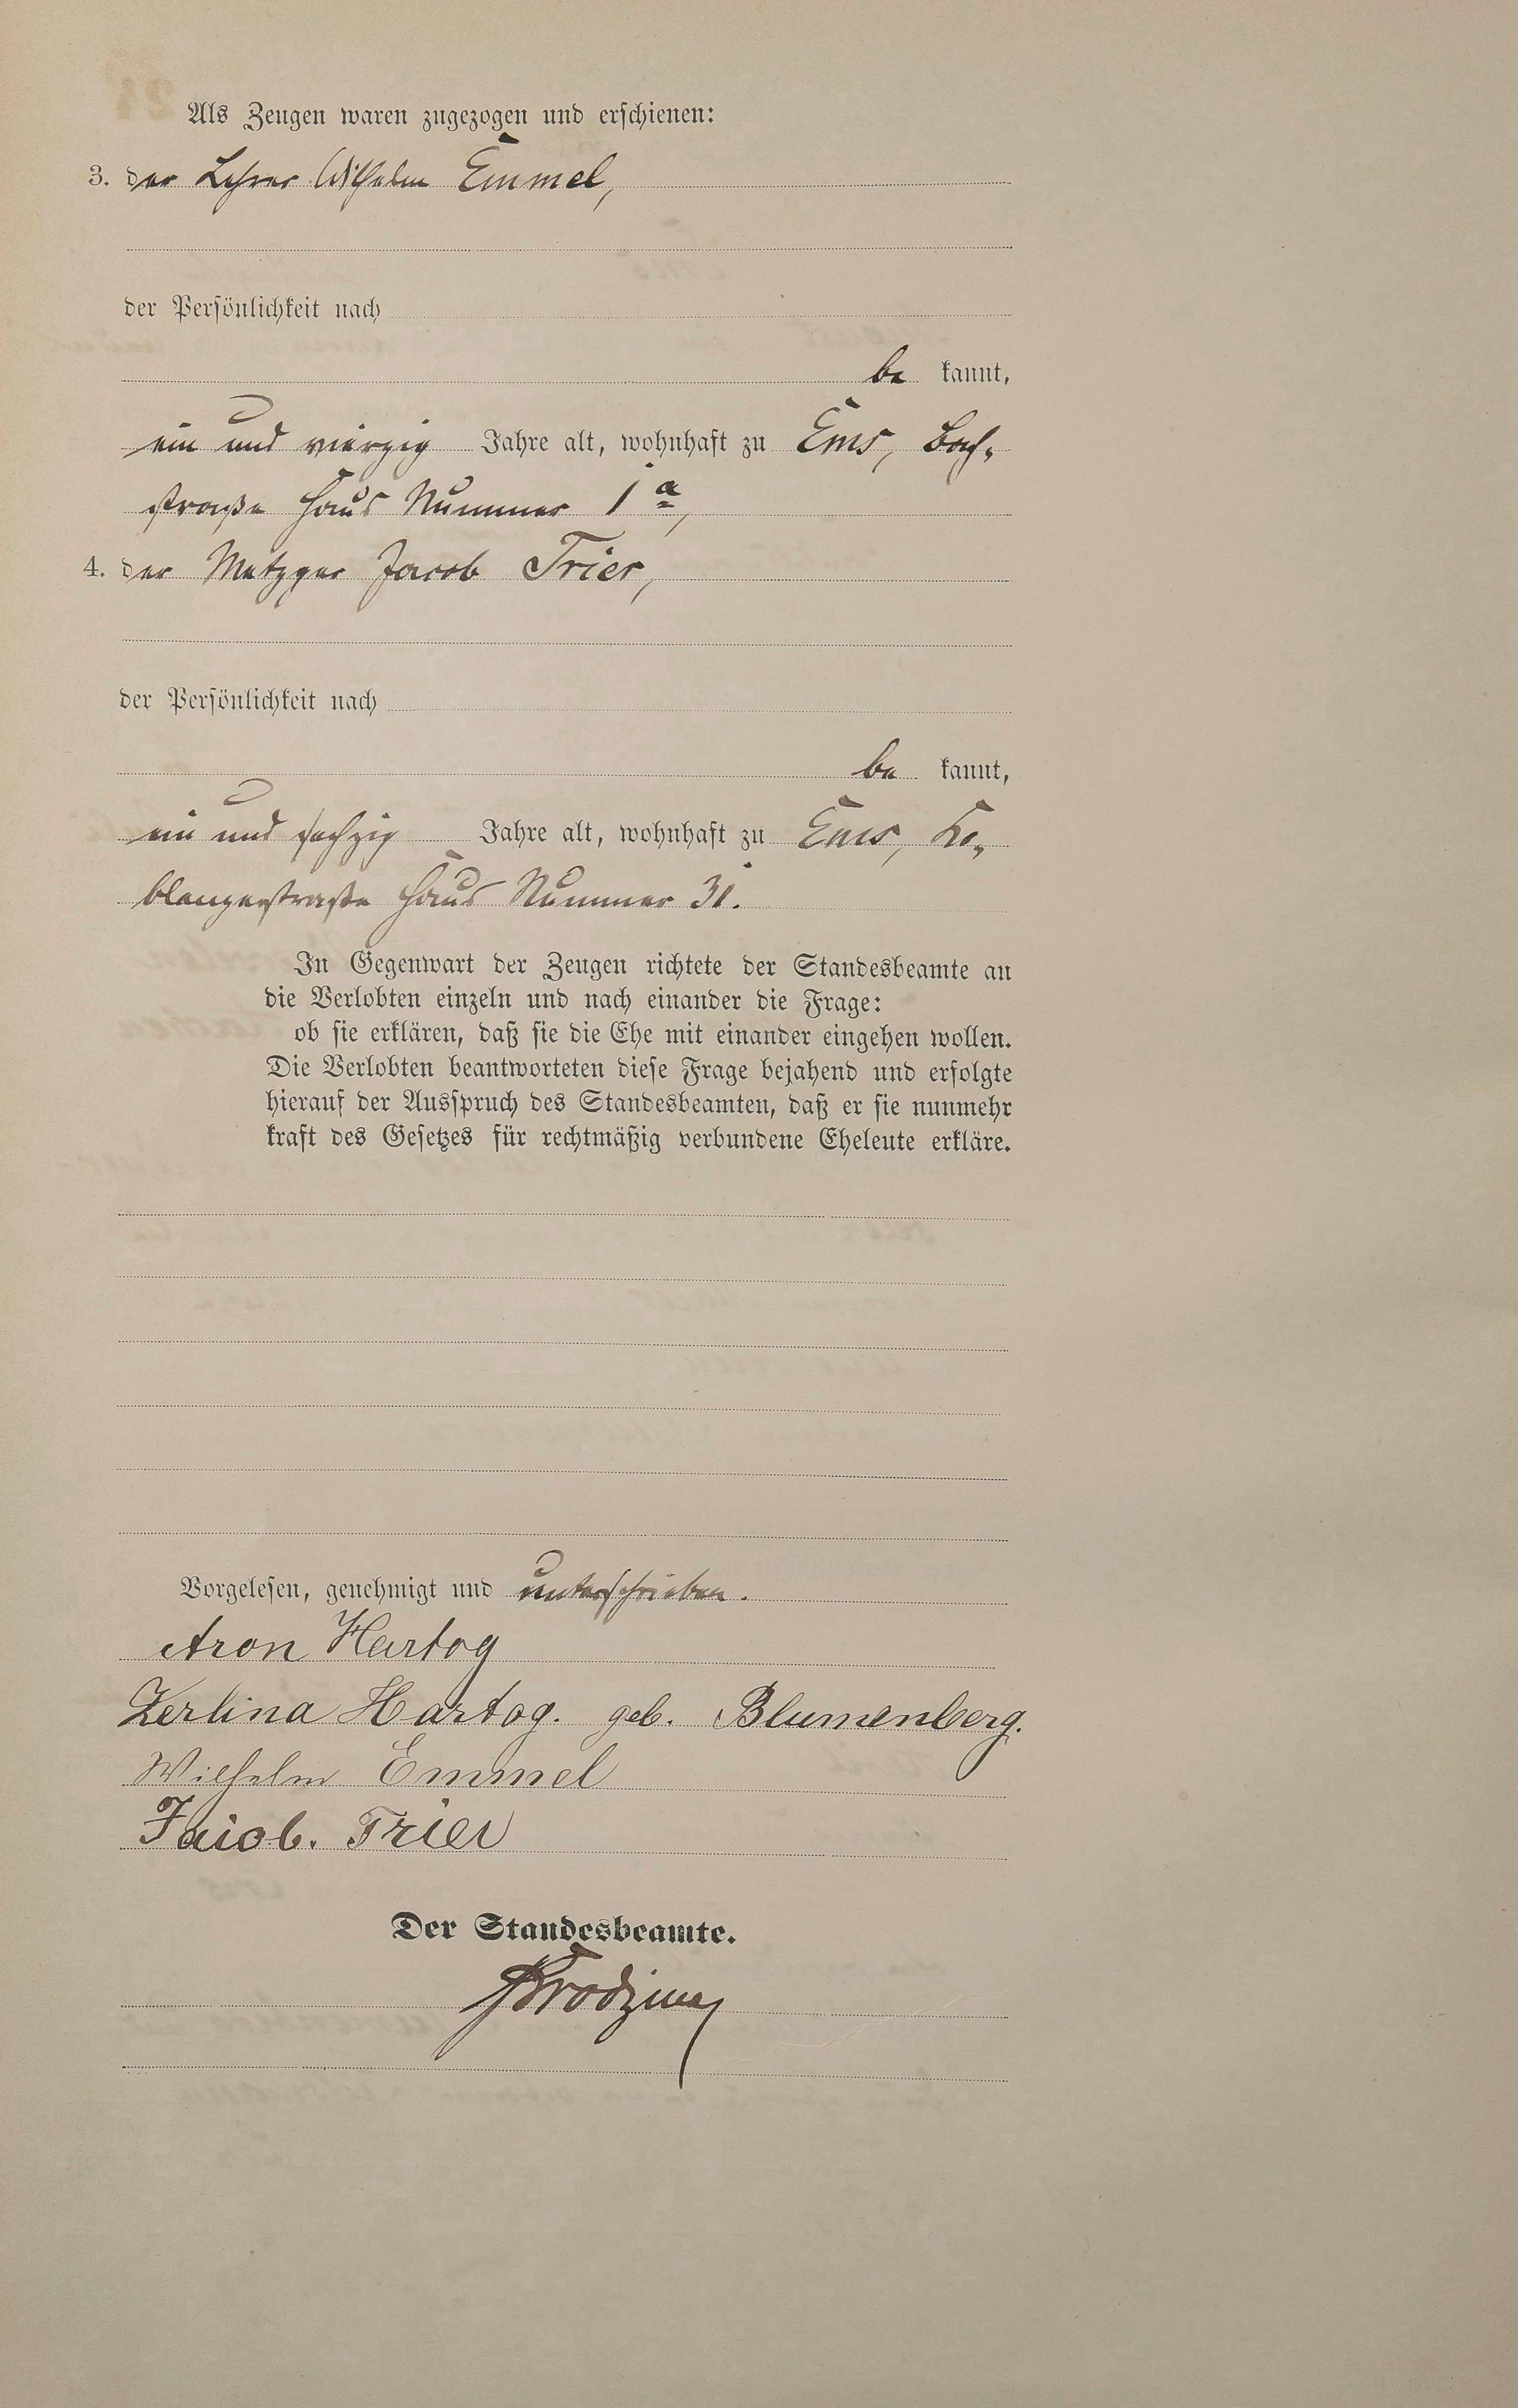 Als Zeugen waren zugezogen und erschienen:
3. der Lehrer Wilhelm Emmel,
der Persönlichkeit nach
be kannt,
ein und vierzig Jahre alt, wohnhaft zu Ems, Bach-
straße Haus Nummer 1a,
4. der Metzger Jacob Trier,
der Persönlichkeit nach
be kannt,
ein und sechzig Jahre alt, wohnhaft zu Ems, Ko-
blenzerstraße Haus Nummer 31.
In Gegenwart der Zeugen richtete der Standesbeamte an
die Verlobten einzeln und nach einander die Frage:
ob sie erklären, daß sie die Ehe mit einander eingehen wollen.
Die Verlobten beantworteten diese Frage bejahend und erfolgte
hierauf der Ausspruch des Standesbeamten, daß er sie nunmehr
kraft des Gesetzes für rechtmäßig verbundene Eheleute erkläre.
Vorgelesen, genehmigt und unterschrieben.
Aron Hartog
Zerlina Hartog. geb. Blumenberg.
Wilhelm Emmel
Jacob. Trier
Der Standesbeamte.